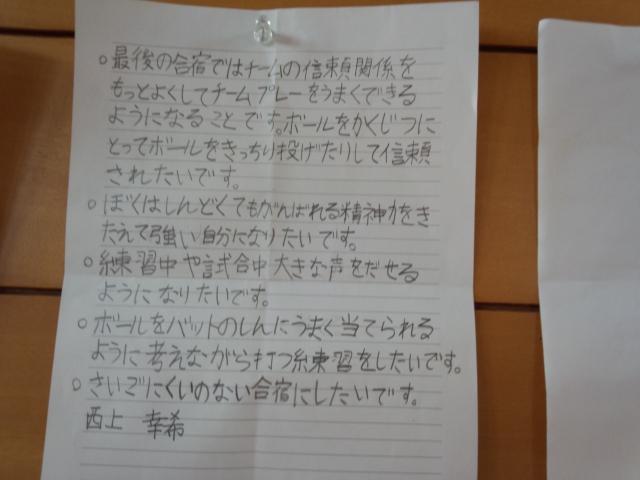 ○最後の合宿ではチームの信頼関係を
もっとよくしてチームプレーをうまくできる
ようになることです。ボールをかくじつに
とってボールをきっちり投げたりして信頼
されたいです。
○ぼくはしんどくてもがんばれる精神力をき
たえて強い自分になりたいです。
○練習中や試合中大きな声をだせる
ようになりたいです。
○ボールをバットのしんにうまく当てられる
ように考えながら打つ練習をしたいです。
○さいごにくいのない合宿にしたいです。
西上 幸希